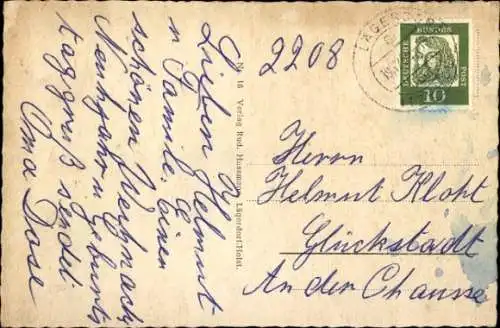 Lieben Helmut
u Familie. Einen
schönen Weihnachts
Neuhjahr u Geburts
taggruß sendet
Oma Dose
No. 18 Verlag Rud. Hussmann, Lägerdorf/Holst.
2208
LÄGERDORF
DEUTSCHE
BUNDES
POST
10
Herrn
Helmut Kloht
Glückstadt
An der Chausse